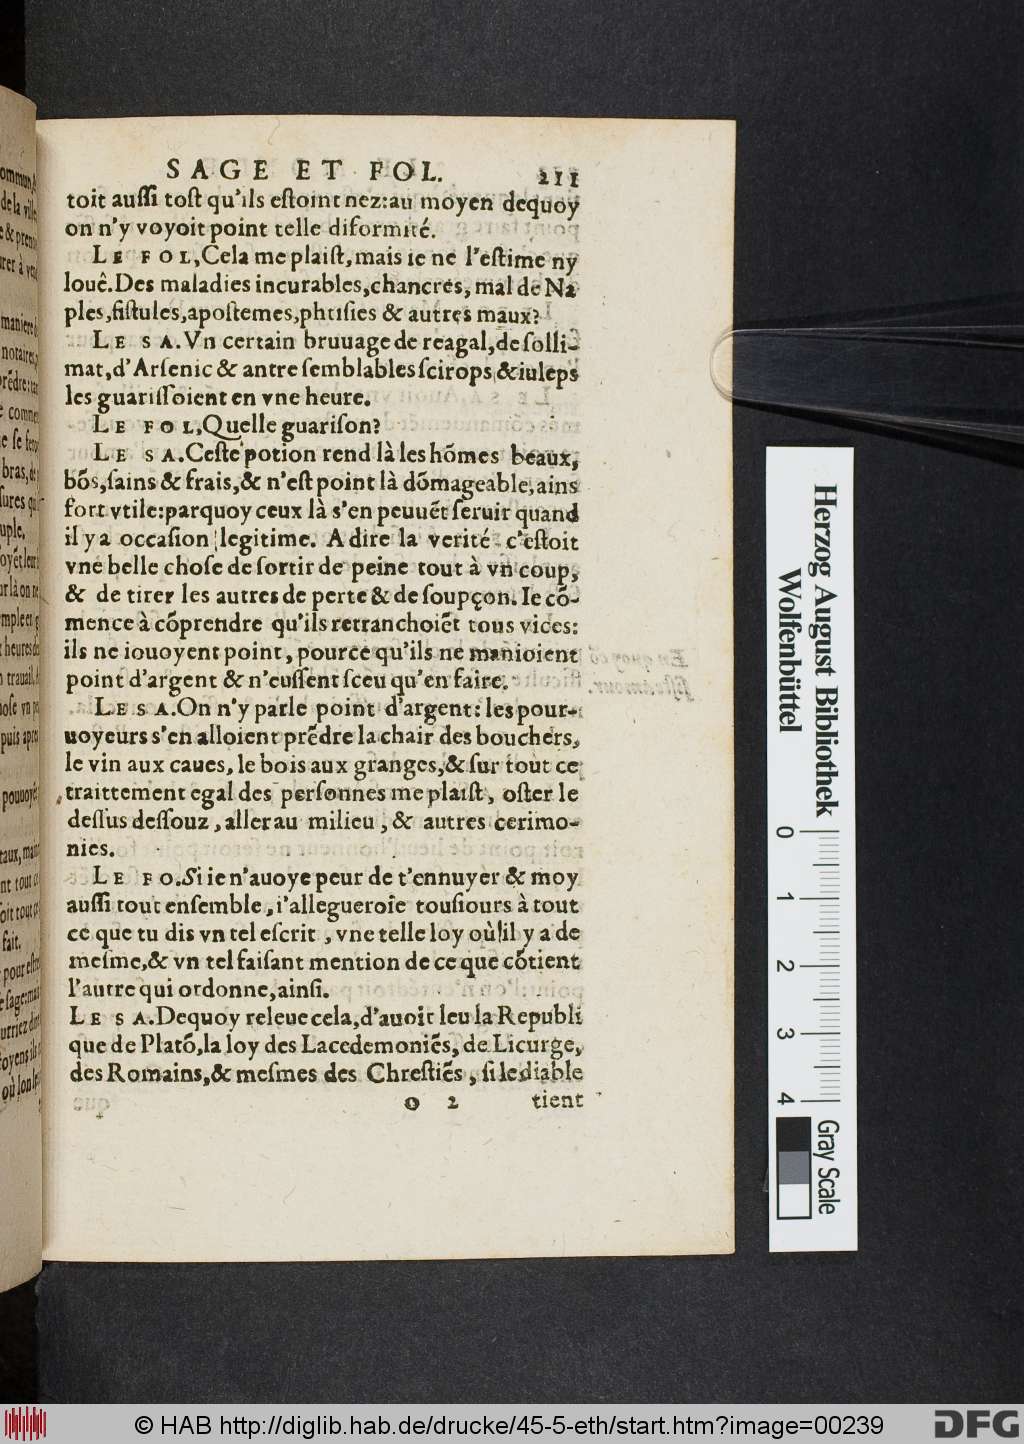 SAGE ET FOL. 211
toit auſſi toſt qu'ils eſtoint nez:au moyen dequoy
on n'y voyoit point telle diformité.
LE FOL, Cela me plaiſt, mais ie ne l'eſtime ny
louê. Des maladies incurables, chancres, mal de Na
ples, fiſtules, apoſtemes, phtiſies & autres maux?
LE SA. Vn certain bruuage de reagal, de ſolli-
mat, d'Arſenic & antre ſemblables ſcirops & iuleps
les guariſſoient en vne heure.
LE FOL, Quelle guariſon?
LE SA. Ceſte potion rend là les hõmes beaux,
bõs, ſains & frais, & n'eſt point là dõmageable, ains
fort vtile: parquoy ceux là s'en peuuẽt ſeruir quand
il y a occaſion legitime. A dire la verité c'eſtoit
vne belle choſe de ſortir de peine tout à vn coup,
& de tirer les autres de perte & de ſoupçon. Ie cõ-
mence à cõprendre qu'ils retranchoiẽt tous vices:
ils ne iouoyent point, pource qu'ils ne manioient
point d'argent & n'euſſent ſceu qu'en faire.
LE SA. On n'y parle point d'argent: les pour-
uoyeurs s'en alloient prẽdre la chair des bouchers,
le vin aux caues, le bois aux granges, & ſur tout ce
traittement egal des perſonnes me plaiſt, oſter le
deſſus deſſouz, aller au milieu, & autres cerimo-
nies.
LE FO. Si ie n'auoye peur de t'ennuyer & moy
auſſi tout enſemble, i'allegueroie touſiours à tout
ce que tu dis vn tel eſcrit, vne telle loy où il y a de
meſme, & vn tel faiſant mention de ce que cõtient
l'autre qui ordonne, ainſi.
LE SA. Dequoy releue cela, d'auoir leu la Republi
que de Platõ, la loy des Lacedemoniẽs, de Licurge,
des Romains, & meſmes des Chreſtiẽs, ſi le diable
O 2 tient
Herzog August Bibliothek
Wolfenbüttel
0 1 2 3 4
Gray Scale
© HAB http://diglib.hab.de/drucke/45-5-eth/start.htm?image=00239
DFG